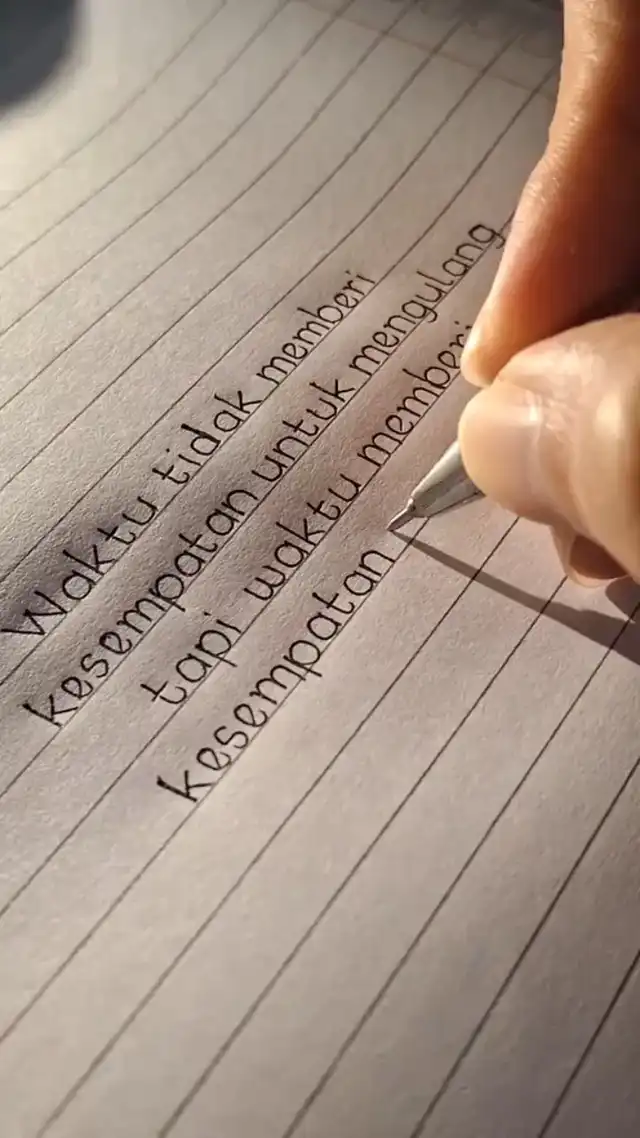 Waktu tidak memberi
kesempatan untuk mengulang
tapi waktu memberi
kesempatan